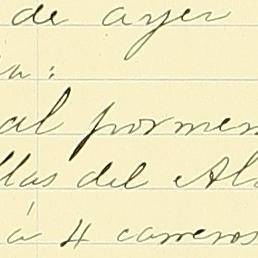 de ayer
ia:
al pormen
llas del Al
á 4 carreros